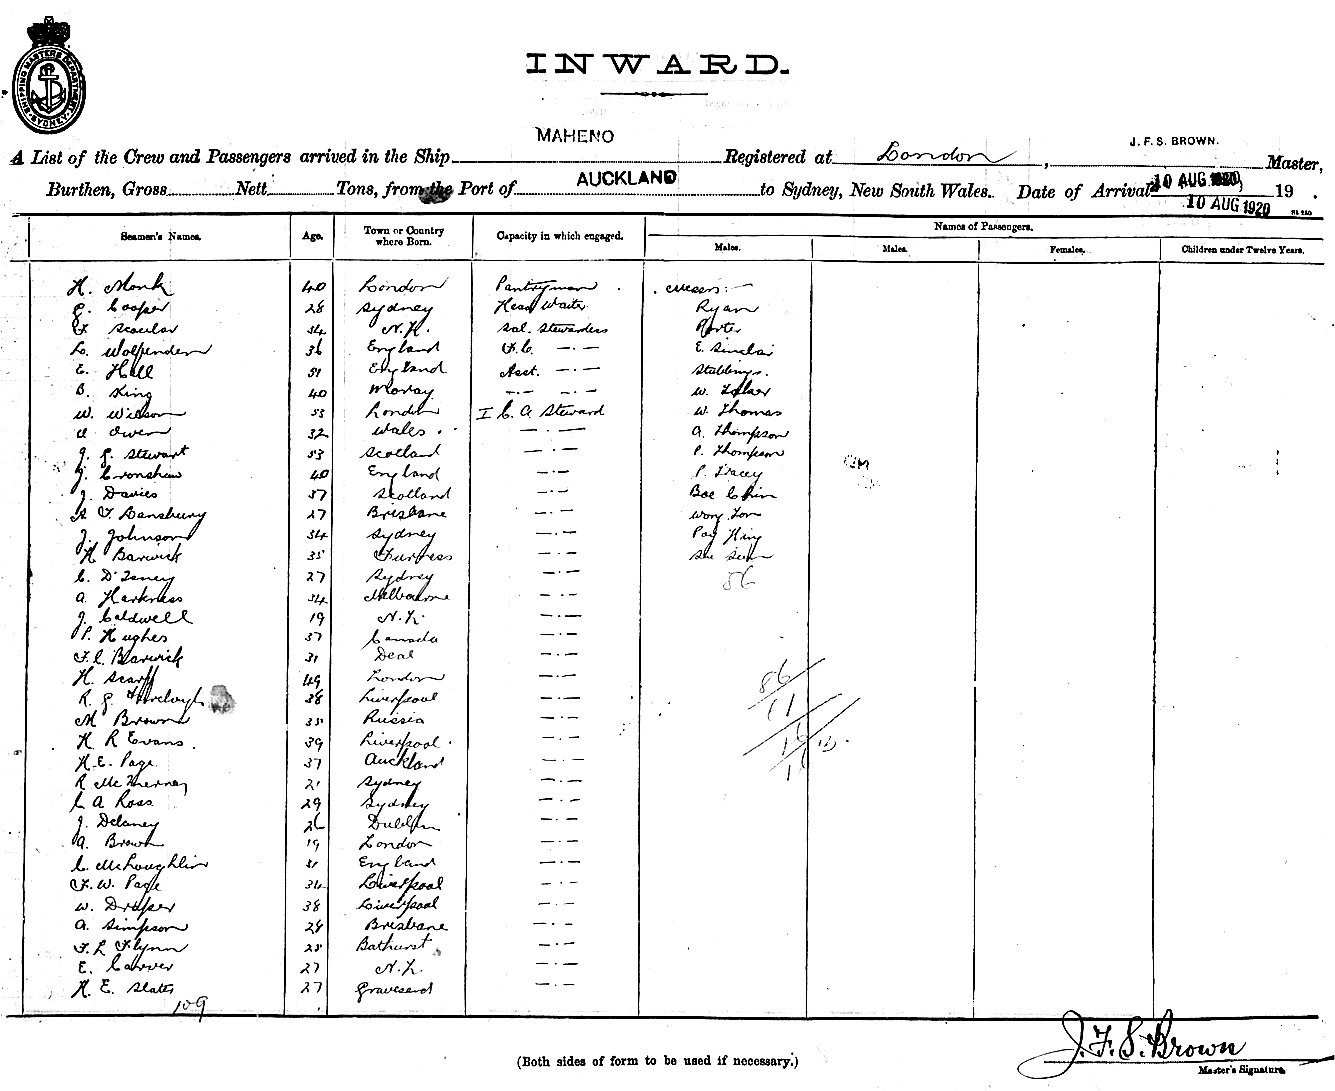 SHIPPING MASTERS DEPARTMENT SYDNEY
INWARD.
MAHENO
J. F. S. BROWN.
A List of the Crew and Passengers arrived in the Ship Registered at London , Master,
Burthen, Gross Nett Tons, from the Port of AUCKLAND to Sydney, New South Wales. Date of Arrival 10 AUG 1920 19 .
10 AUG 1920
Seamen's Names. Age. Town or Country where Born. Capacity in which engaged. Names of Passengers.
Males. Males. Females. Children under Twelve Years.
H. Monk 40 London Pantryman . Messrs :—
G. Cooper 28 Sydney Head Waiter Ryan
F. Scoular 34 N.Z. Sal. Stewardess Porter
L. Wolfenden 36 England F.C. — · — E. Sinclair
E. Hall 51 England Asst. — · — Stebbings.
B. King 40 Moray — · — — · — W.
W. Wilson 53 London I C. A. Steward W. Thomas
Owen 32 Wales . — · — A. Thompson
J. G. Stewart 53 Scotland — · — P. Thompson
J. Cronshaw 40 England — · — P. Tracey
J. Davies 37 Scotland — · — Boe Chin
F Dansbury 27 Brisbane — · — Wong Tom
J. Johnson 34 Sydney — · — Pay King
H Barwick 35 — · — Sue
C. D'Taney 27 Sydney — · — 86
A. Harkness 34 Melbourne — · —
J. Caldwell 19 N.Z. — · —
P. Hughes 37 Canada — · —
F. C. Barwick 31 Deal — · —
H. Scarff 49 London — · — 86
R. G 38 Liverpool — · — 11
M Brown 35 Russia — · —
H R Evans . 39 Liverpool . — · —
H. E. Page 37 Auckland — · —
R McInerney 21 Sydney — · —
C A Ross 29 Sydney — · —
J. Delaney 26 Dublin — · —
A. Brown 19 London — · —
C. McLoughlin 31 England — · —
F. W. Page 34 Liverpool — · —
W. Draper 38 Liverpool — · —
A. Simpson 24 Brisbane — · —
F. L Flynn 25 Bathurst — · —
E. Carver 27 N.Z. — · —
H. E. Slater 27 Gravesend — · —
109
J. F. S. Brown
(Both sides of form to be used if necessary.) Master's Signature